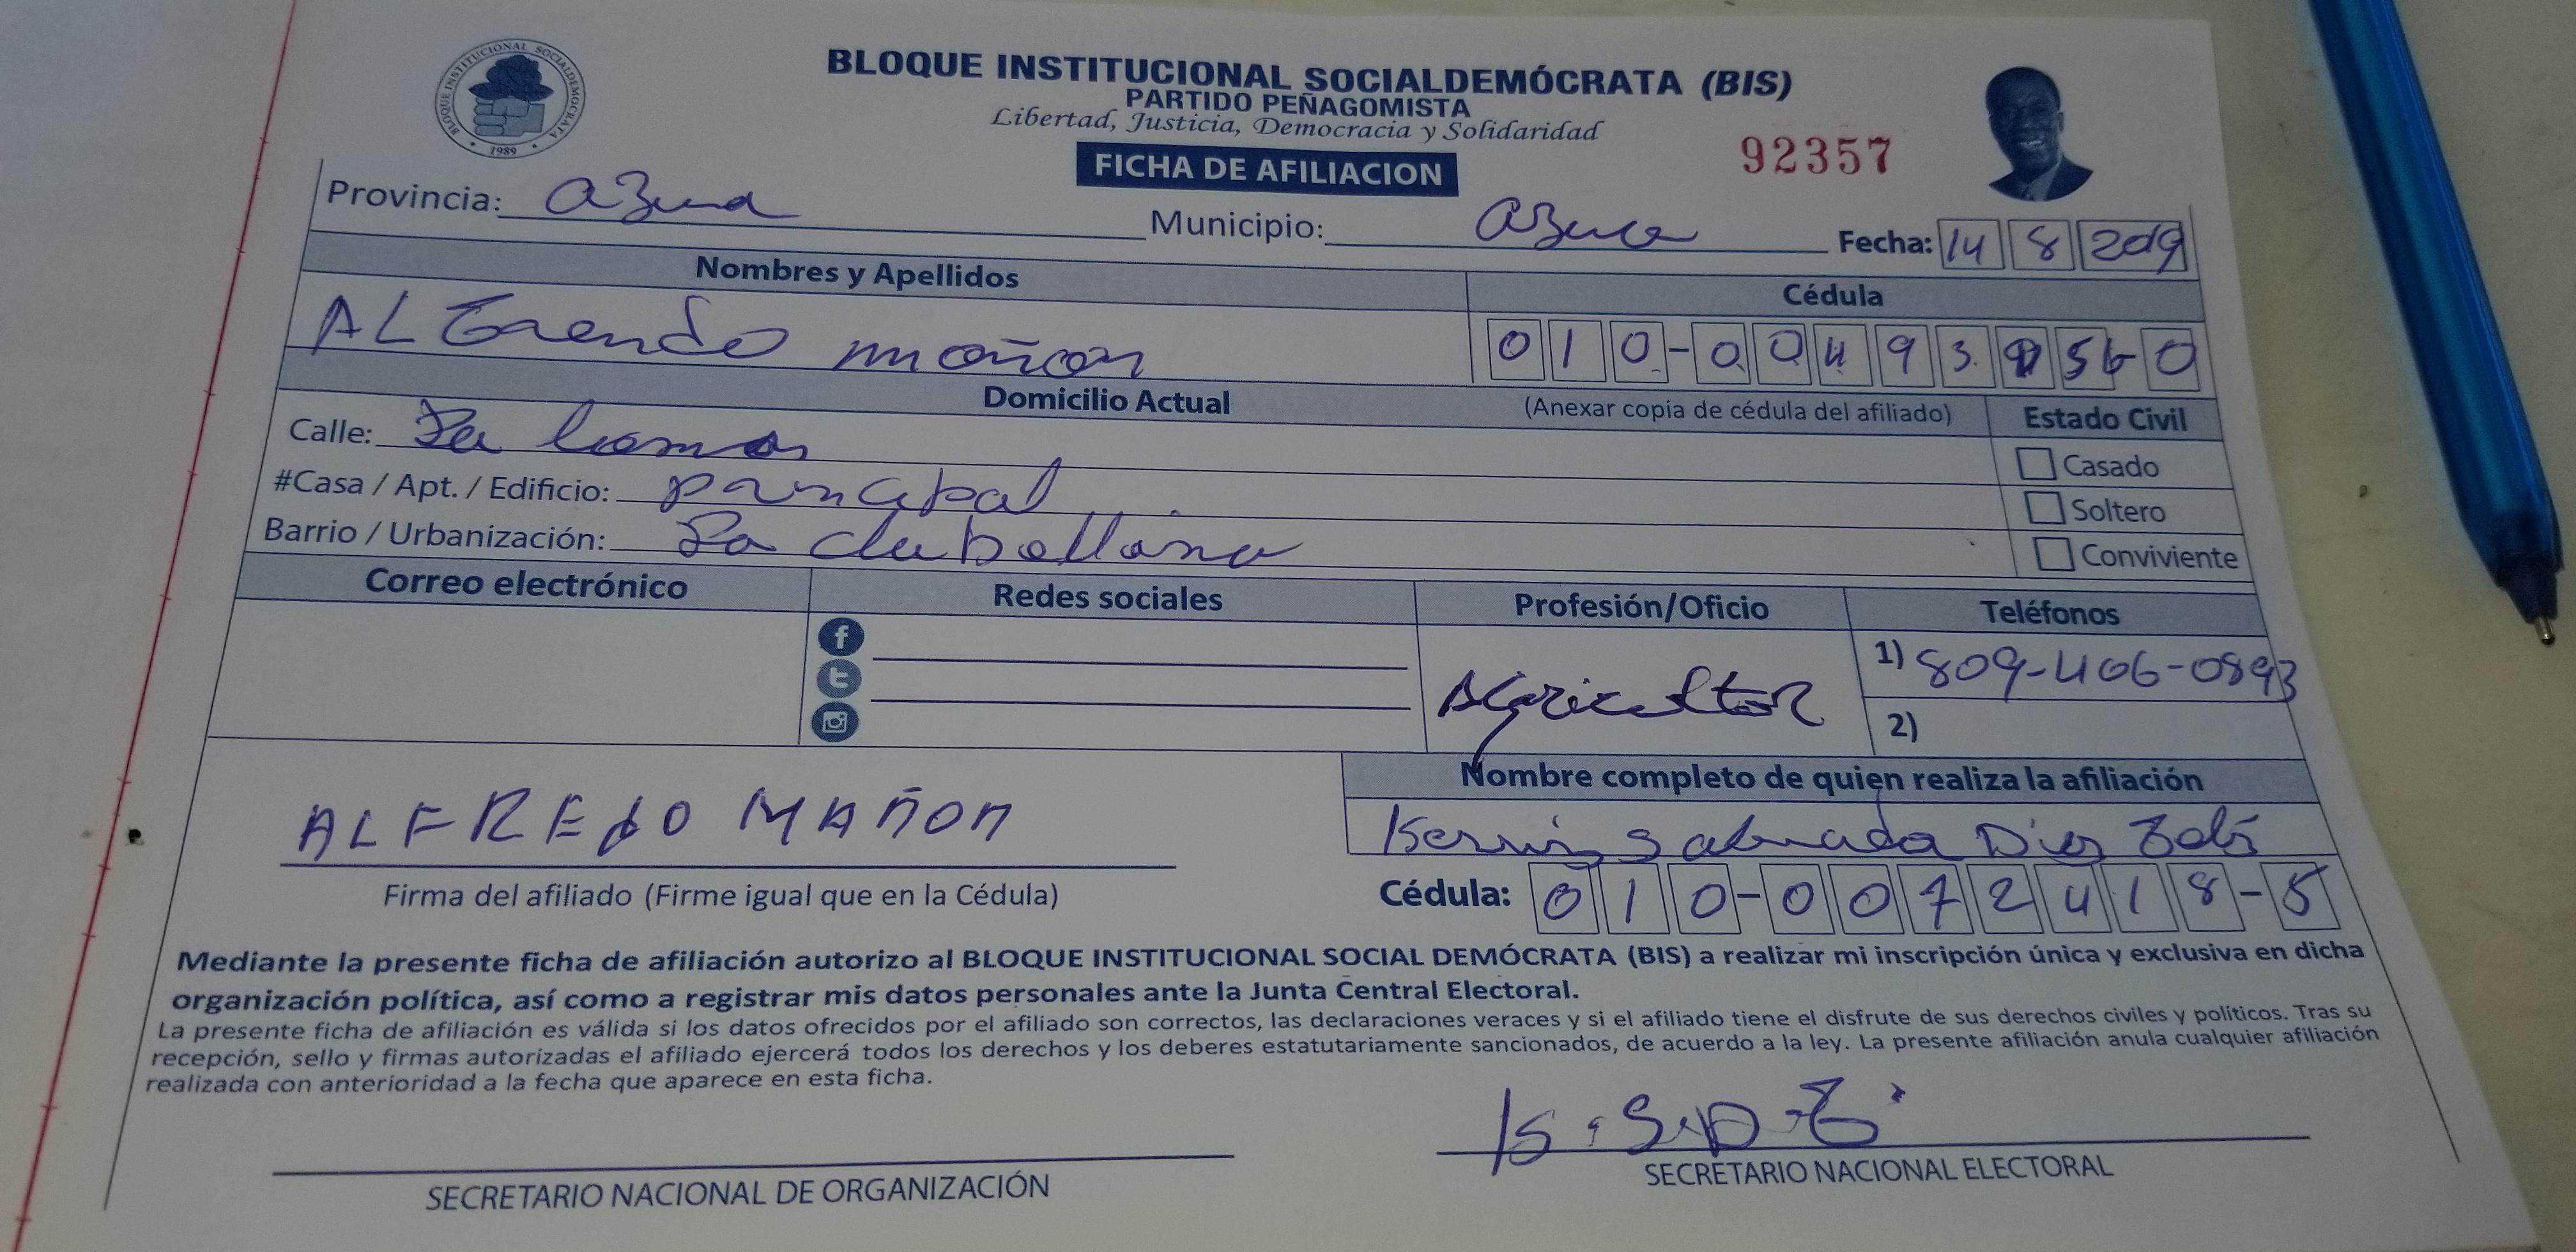 BLOQUE INSTITUCIONAL SOCIALDEMÓCRATA
1989
BLOQUE INSTITUCIONAL SOCIALDEMÓCRATA (BIS)
PARTIDO PEÑAGOMISTA
Libertad, Justicia, Democracia y Solidaridad
FICHA DE AFILIACION
92357
Provincia: Azua Municipio: Azua Fecha: 14 8 2019
Nombres y Apellidos Cédula
mañon 010-00493 56-0
Domicilio Actual (Anexar copia de cédula del afiliado) Estado Civil
Calle: La Casado
#Casa / Apt. / Edificio: principal Soltero
Barrio / Urbanización: La Conviviente
Correo electrónico Redes sociales Profesión/Oficio Teléfonos
Agricultor
1) 809-406-0893
2)
Nombre completo de quien realiza la afiliación
ALFREdO MAÑON
Firma del afiliado (Firme igual que en la Cédula)
Cédula: 010-0072418-5
Mediante la presente ficha de afiliación autorizo al BLOQUE INSTITUCIONAL SOCIAL DEMÓCRATA (BIS) a realizar mi inscripción única y exclusiva en dicha
organización política, así como a registrar mis datos personales ante la Junta Central Electoral.
La presente ficha de afiliación es válida si los datos ofrecidos por el afiliado son correctos, las declaraciones veraces y si el afiliado tiene el disfrute de sus derechos civiles y políticos. Tras su
recepción, sello y firmas autorizadas el afiliado ejercerá todos los derechos y los deberes estatutariamente sancionados, de acuerdo a la ley. La presente afiliación anula cualquier afiliación
realizada con anterioridad a la fecha que aparece en esta ficha.
SECRETARIO NACIONAL DE ORGANIZACIÓN
SECRETARIO NACIONAL ELECTORAL